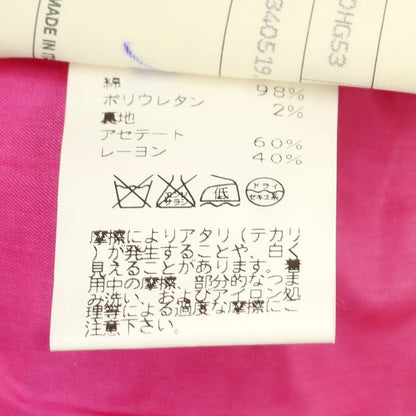 MADE IN IT
340519
0HG53
綿 98%
ポリウレタン 2%
裏地
アセテート 60%
レーヨン 40%
エンソ サラシ 低 ドライ セキユ系
摩擦によりアタリ(テカリ
)が発生することや、白く
見えることがあります。着
用中の摩擦、部分的なつま
み洗い、およびアイロン処
理等による過度な摩擦にご
注意下さい。